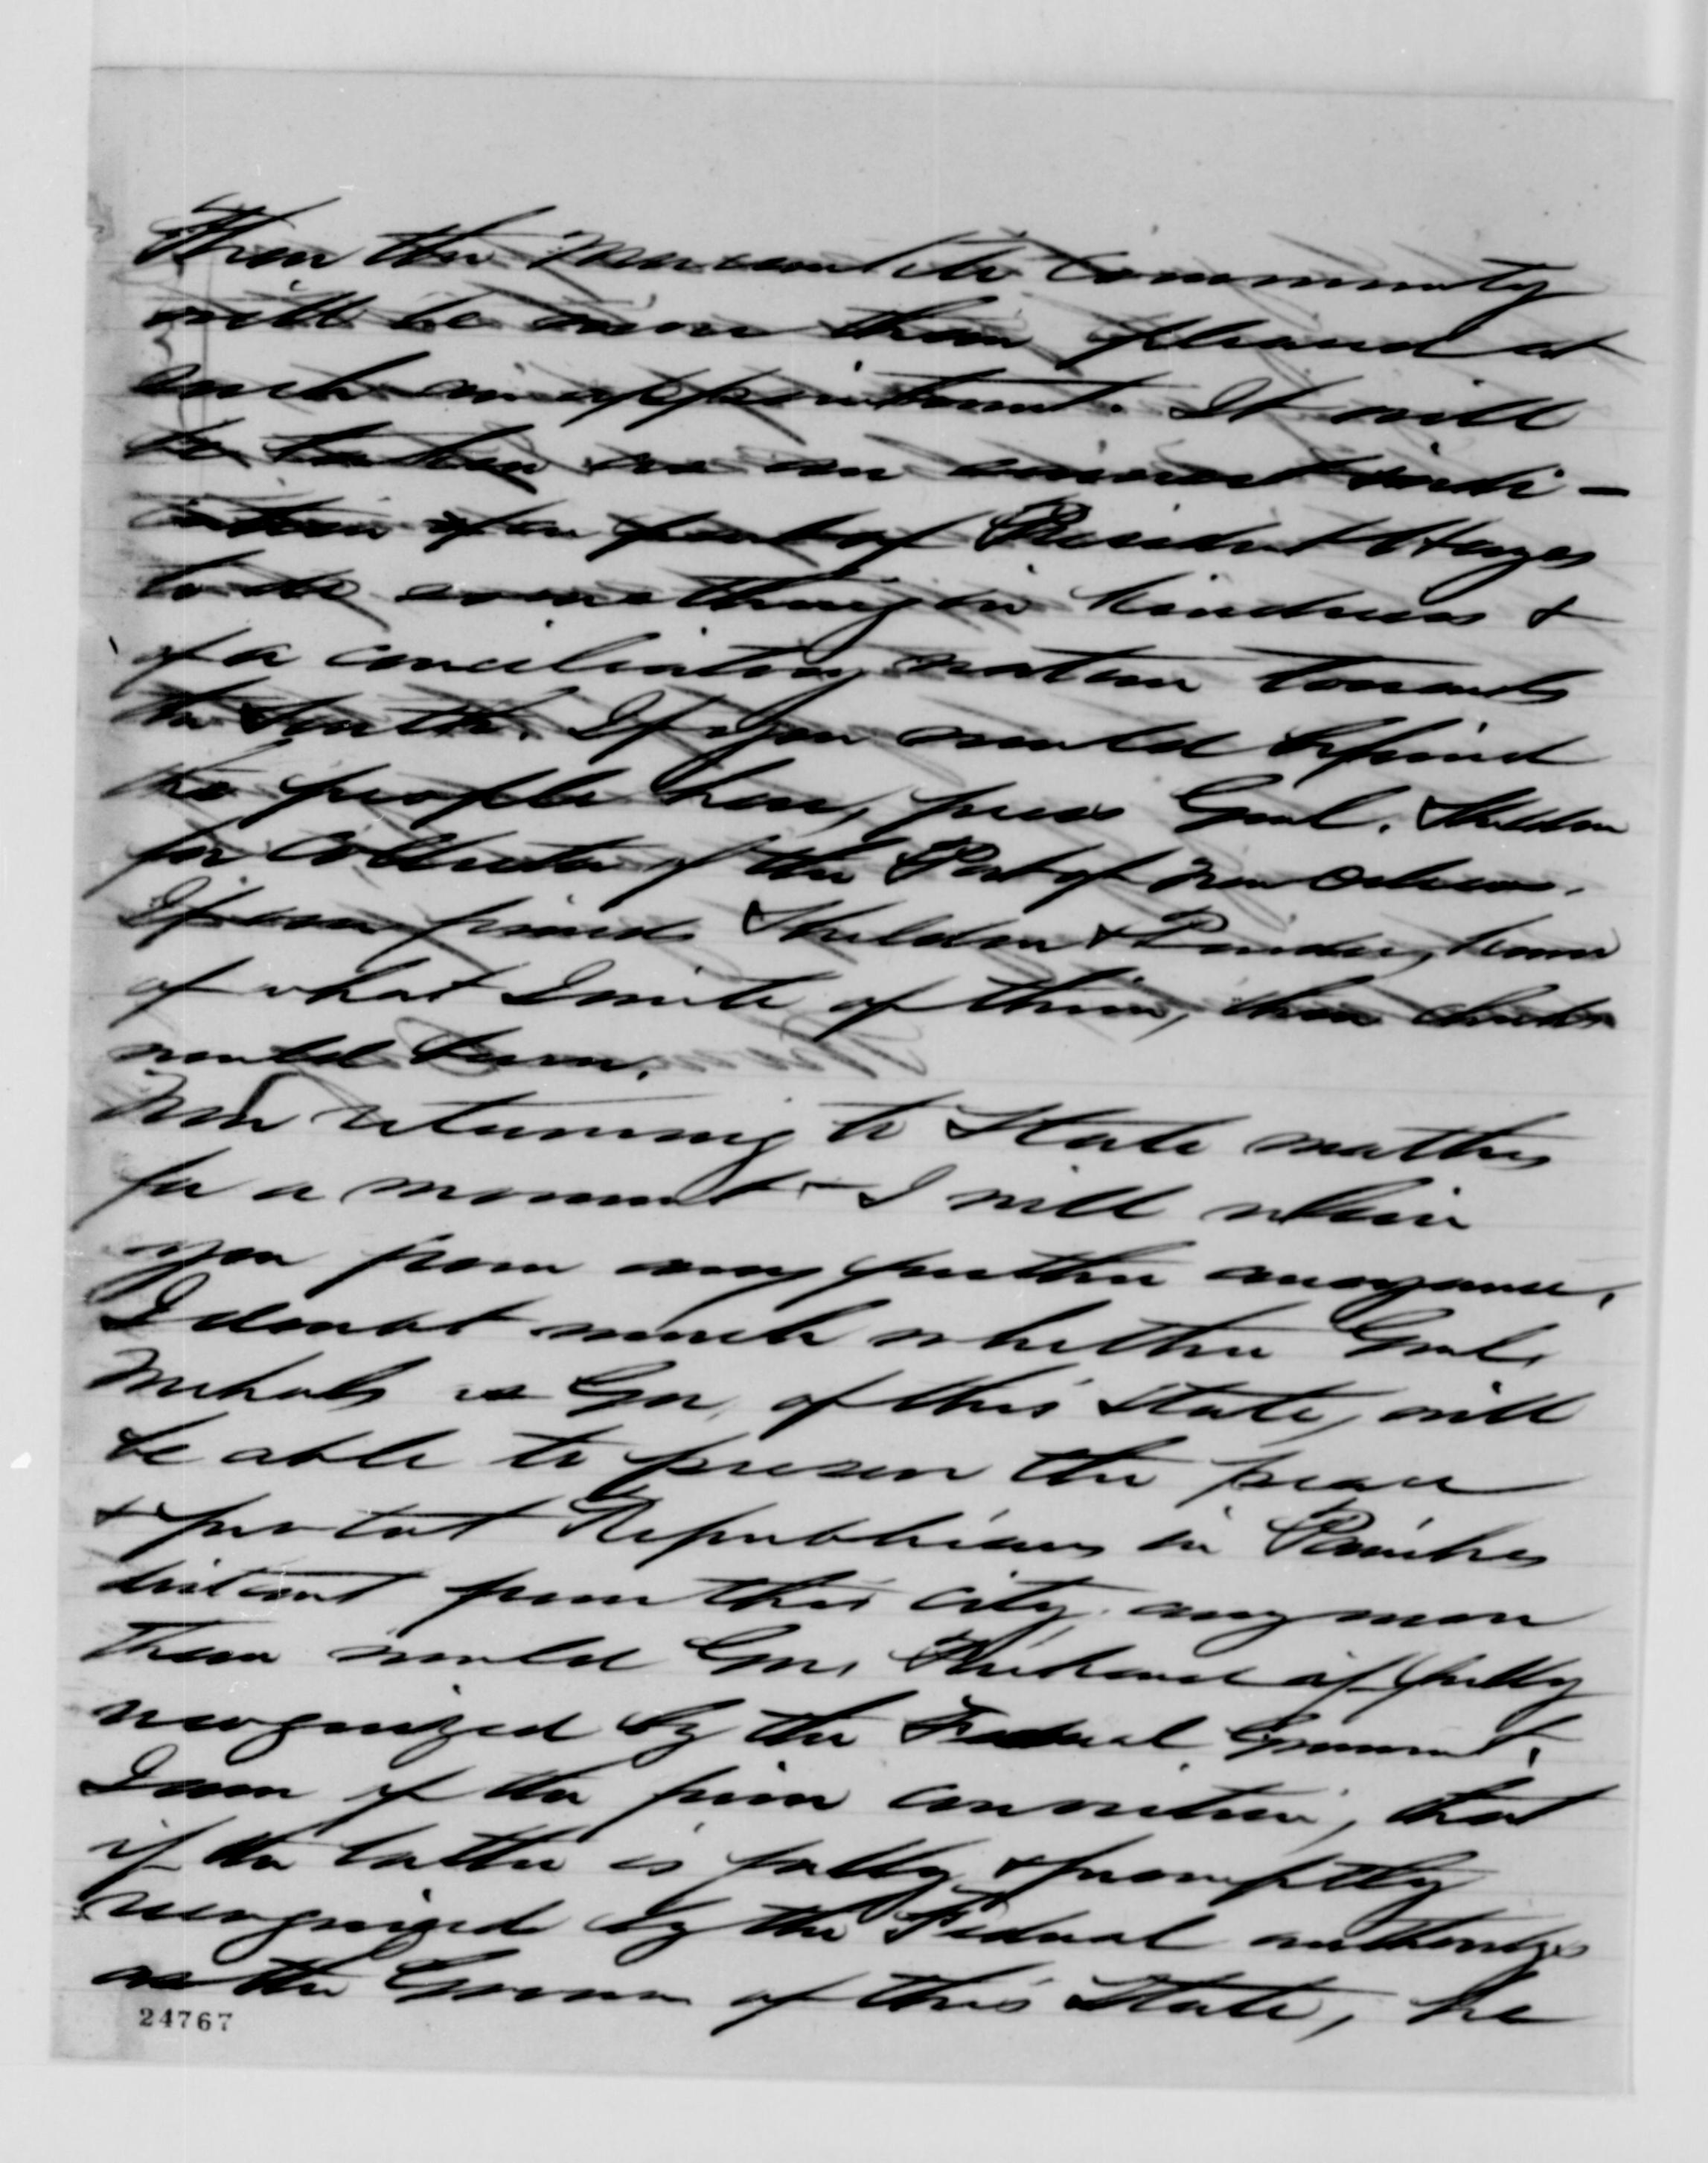 Then the Mercantile Community
will be more than pleased at
such an appointment. It will
be taken as an earnest indi-
cation of on part of President Hayes
to do something in kindness &
of a conciliatory nature towards
the South. If you would befriend
the people here, press Genl. Sheldon
for Collector of the Port of New Orleans.
If our friends Sheldon & knew
of what I write of them, their cheeks
would burn.
Now returning to State matters
for a moment & I will relieve
you from any further annoyance.
I doubt much whether Genl.
Nichols as Gov. of this State, will
be able to preserve the peace
& protect Republicans in Parishes
distant from this city, any more
than would Gov. Packard if fully
recognized by the Federal Government.
I am of the firm conviction, that
if the latter is fully & promptly
recognized by the Federal authorities
as the Governor of this State, he
24767